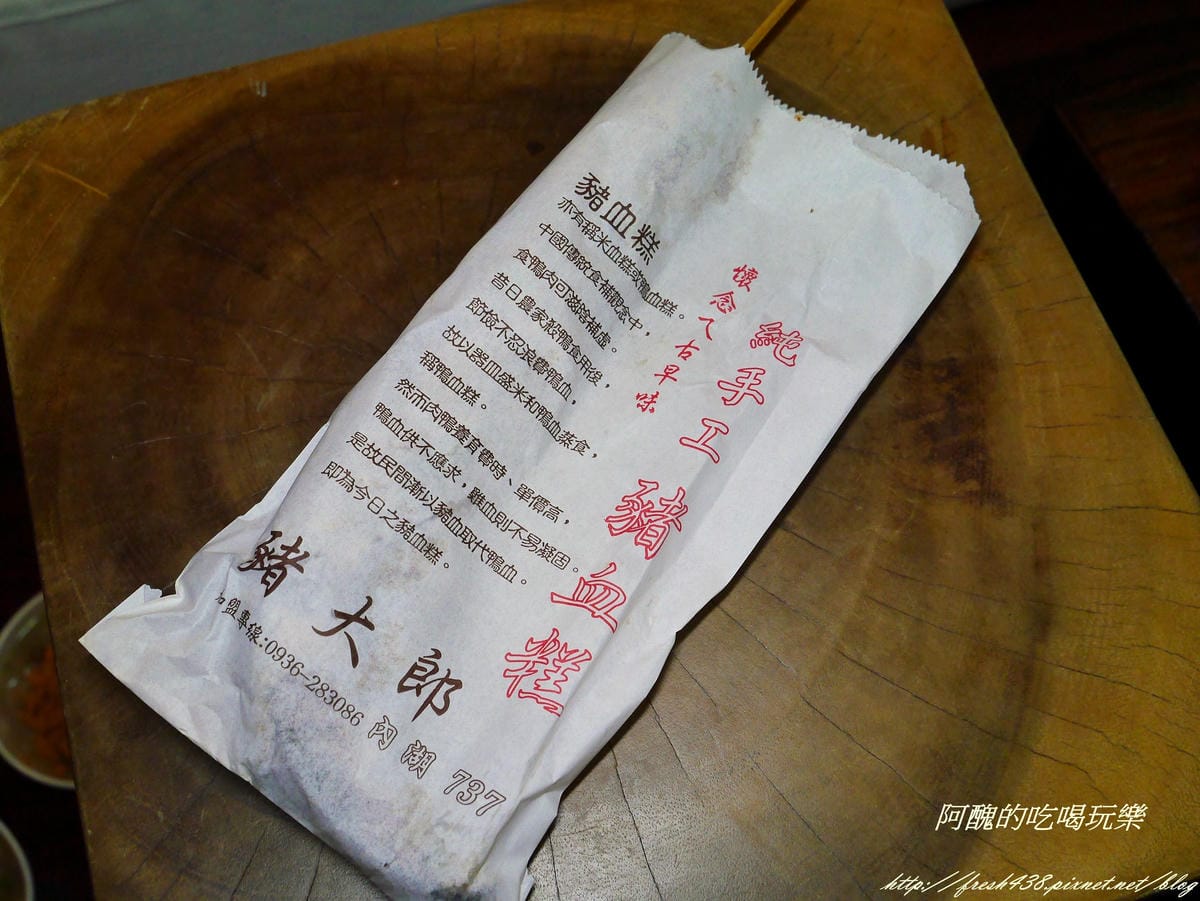 豬血糕
亦有稱米血糕或鴨血糕。
中國傳統食補觀念中，
食鴨肉可滋陰補虛。
昔日農家殺鴨食用後，
節儉不忍浪費鴨血，
故以器皿盛米和鴨血蒸食，
稱鴨血糕。
然而肉鴨養育費時、單價高，
鴨血供不應求，雞血則不易凝固。
是故民間漸以豬血取代鴨血。
即為今日之豬血糕。
懷念ㄟ古早味
純手工豬血糕
豬大郎
加盟專線:0936-283086 內湖 737
阿醜的吃喝玩樂
http://fresh438.pixnet.net/blog